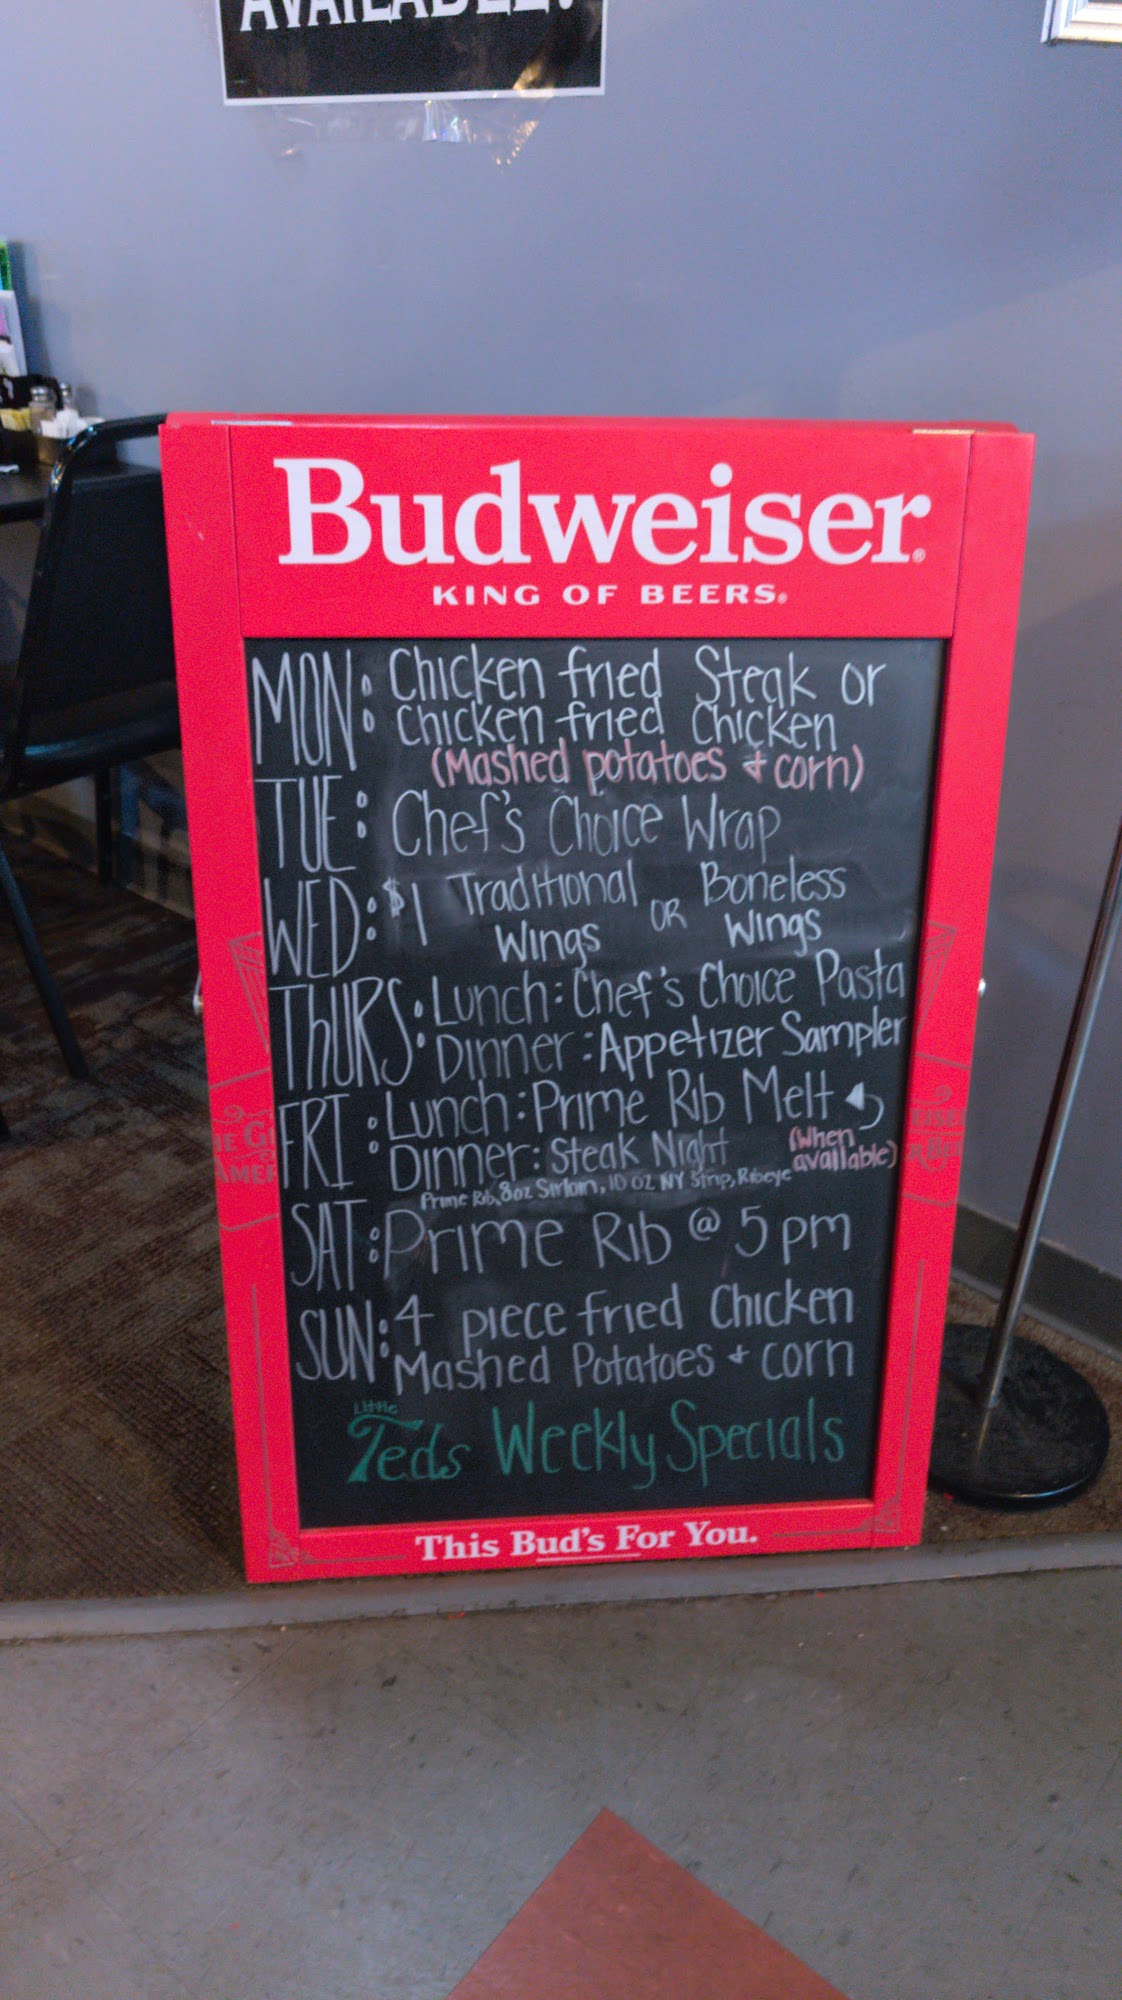 AVAILABLE!
Budweiser®
KING OF BEERS®
MON: Chicken fried Steak or
Chicken fried Chicken
(Mashed potatoes + corn)
TUE: Chef's Choice Wrap
WED: $1 Traditional Wings OR Boneless Wings
THURS: Lunch: Chef's Choice Pasta
Dinner: Appetizer Sampler
FRI: Lunch: Prime Rib Melt
(When available)
Dinner: Steak Night
Prime Rib, 8oz Sirloin, 10 oz NY Strip, Ribeye
SAT: Prime Rib @ 5pm
SUN: 4 piece fried Chicken
Mashed Potatoes + corn
Little
Teds Weekly Specials
This Bud's For You.